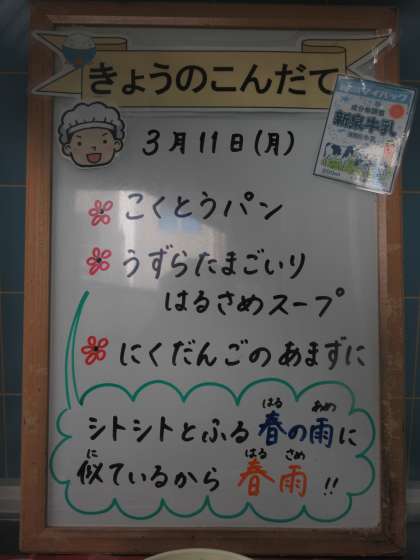 きょうのこんだて
成分無調整
新泉牛乳
200ml
3月11日(月)
こくとうパン
うずらたまごいり
はるさめスープ
にくだんごのあまずに
シトシトとふる春の雨に
はる あめ
似ているから 春雨!!
に はる さめ